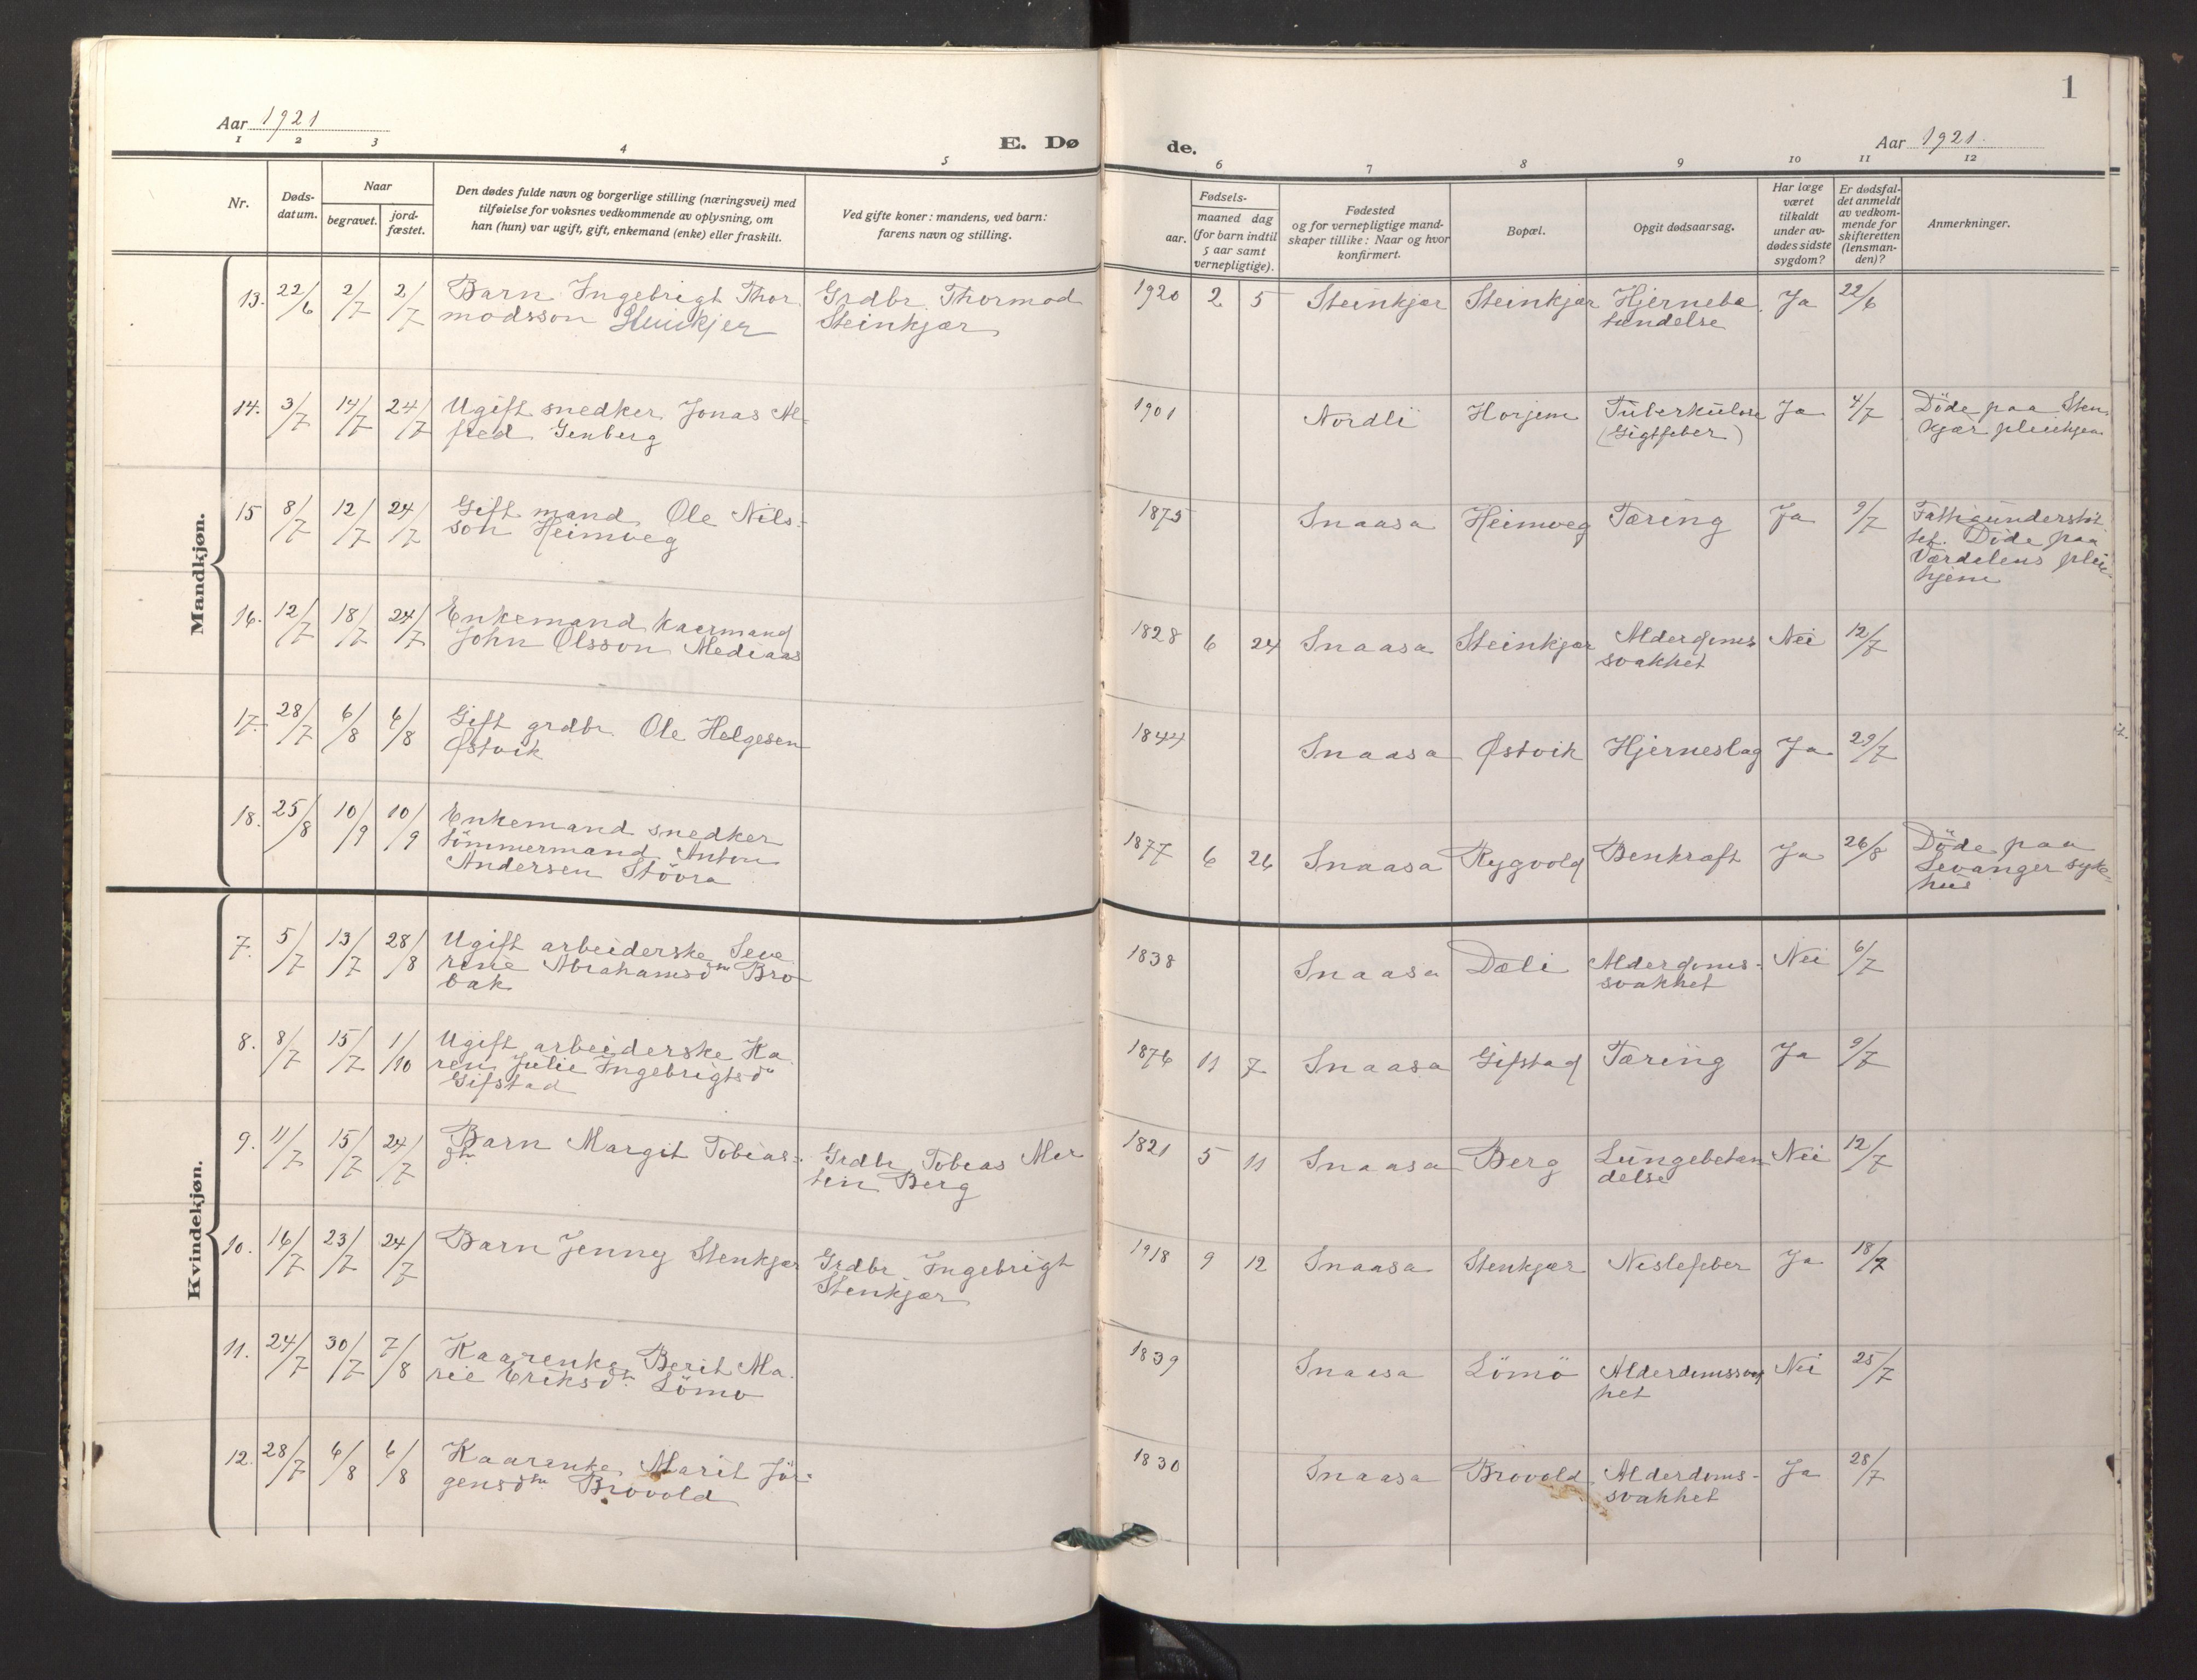 1
Aar 1921
E. Dø
de.
Aar 1921.
1 2 3 4 5
6 7 8 9 10 11 12
Nr.
Døds-
datum.
Naar
begravet.
jord-
fæstet.
Den dødes fulde navn og borgerlige stilling (næringsvei) med
tilføielse for voksnes vedkommende av oplysning, om
han (hun) var ugift, gift, enkemand (enke) eller fraskilt.
Ved gifte koner: mandens, ved barn:
farens navn og stilling.
Fødsels-
aar.
maaned dag
(for barn indtil
5 aar samt
vernepligtige).
Fødested
og for vernepligtige mand-
skaper tillike: Naar og hvor
konfirmert.
Bopæl.
Opgit dødsaarsag.
Har læge
været
tilkaldt
under av-
dødes sidste
sygdom?
Er dødsfal-
det anmeldt
av vedkom-
mende for
skifteretten
(lensman-
den)?
Anmerkninger.
Mandkjøn.
13. 22/6 2/7 2/7 Barn Ingebrigt Thor Grdbr Thormod 1920 2 5 Steinkjær Steinkjær Hjernebe Ja 22/6
modsson Steinkjer Steinkjær tændelse
14. 3/7 14/7 24/7 Ugift snedker Jonas Al- 1901 Nordli Horjem Tuberkulose Ja 4/7 Döde paa Sten
fred Genberg (Gigtfeber) kjær pleiehjem
15 8/7 12/7 24/7 Gift mand Ole Nils- 1875 Snaasa Heimveg Tæring Ja 9/7 Fattigunderstöt
son Heimveg tet. Döde paa
Værdalens pleie-
hjem
16. 12/7 18/7 24/7 Enkemand kaarmand 1828 6 24 Snaasa Steinkjær Alderdoms- Nei 12/7
John Olsson Mediaas svakhet
17. 28/7 6/8 6/8 Gift grdbr. Ole Helgesen 1844 Snaasa Østvik Hjerneslag Ja 29/7
Østvik
18. 25/8 10/9 10/9 Enkemand snedker 1877 6 26 Snaasa Rygvold Benkræft Ja 26/8 Döde paa
tömmermand Anton Levanger syke-
Andersen Stövra hus
Kvindekjøn.
7. 5/7 13/7 28/8 Ugift arbeiderske Seve 1838 Snaasa Dæli Alderdoms- Nei 6/7
rine Abrahamsdtr Bro svakhet
bak
8. 8/7 15/7 1/10 Ugift arbeiderske Ka 1876 11 7 Snaasa Gifstad Tæring Ja 9/7
ren Julie Ingebrigtsd
Gifstad
9. 11/7 15/7 24/7 Barn Margit Tobias- Grdbr Tobias Mor 1821 5 11 Snaasa Berg Lungebetæn Nei 12/7
dtr ten Berg delse
10. 16/7 23/7 24/7 Barn Jenny Stenkjær Grdbr Ingebrigt 1918 9 12 Snaasa Stenkjær Neslefeber Ja 18/7
Stenkjær
11. 24/7 30/7 7/8 Kaarenke Berit Ma 1839 Snaasa Lömo Alderdomssvag Nei 25/7
rie Eriksdtr Lömo het
12. 28/7 6/8 6/8 Kaarenke Marit Jör- 1830 Snaasa Brovold Alderdoms- Ja 28/7
gensdtr Brovold svakhet